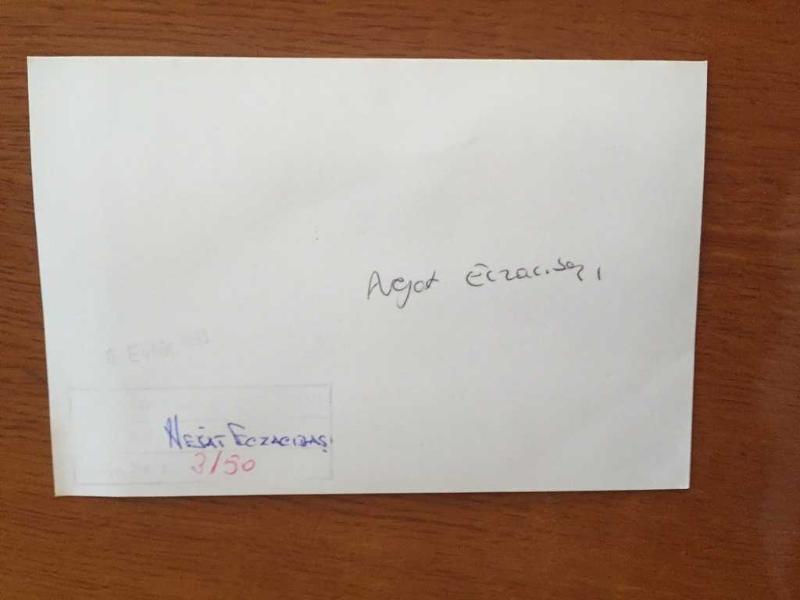 Nejat Eczacıbaşı
Eylül
NEJAT ECZACIBAŞI
3/50